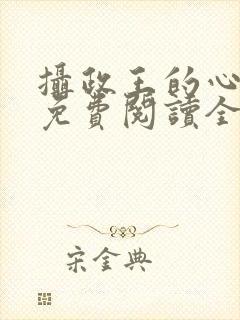 攝政王的心
免費閱讀全
宋金典